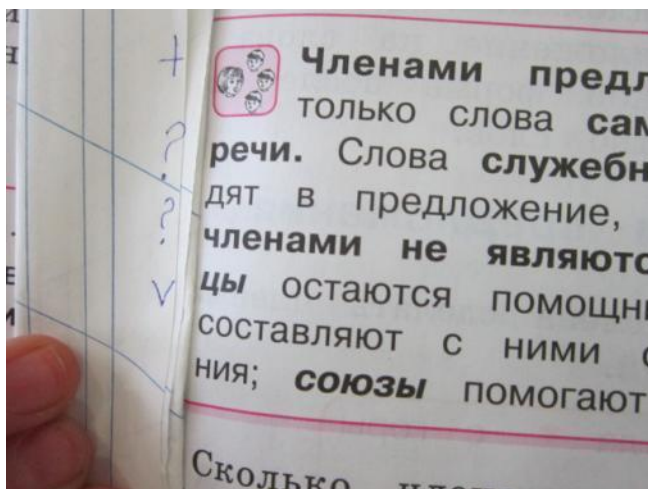 +
?
?
v
Членами предл
только слова сам
речи. Слова служебн
дят в предложение,
членами не являютс
цы остаются помощни
составляют с ними
ния; союзы помогают
Сколько